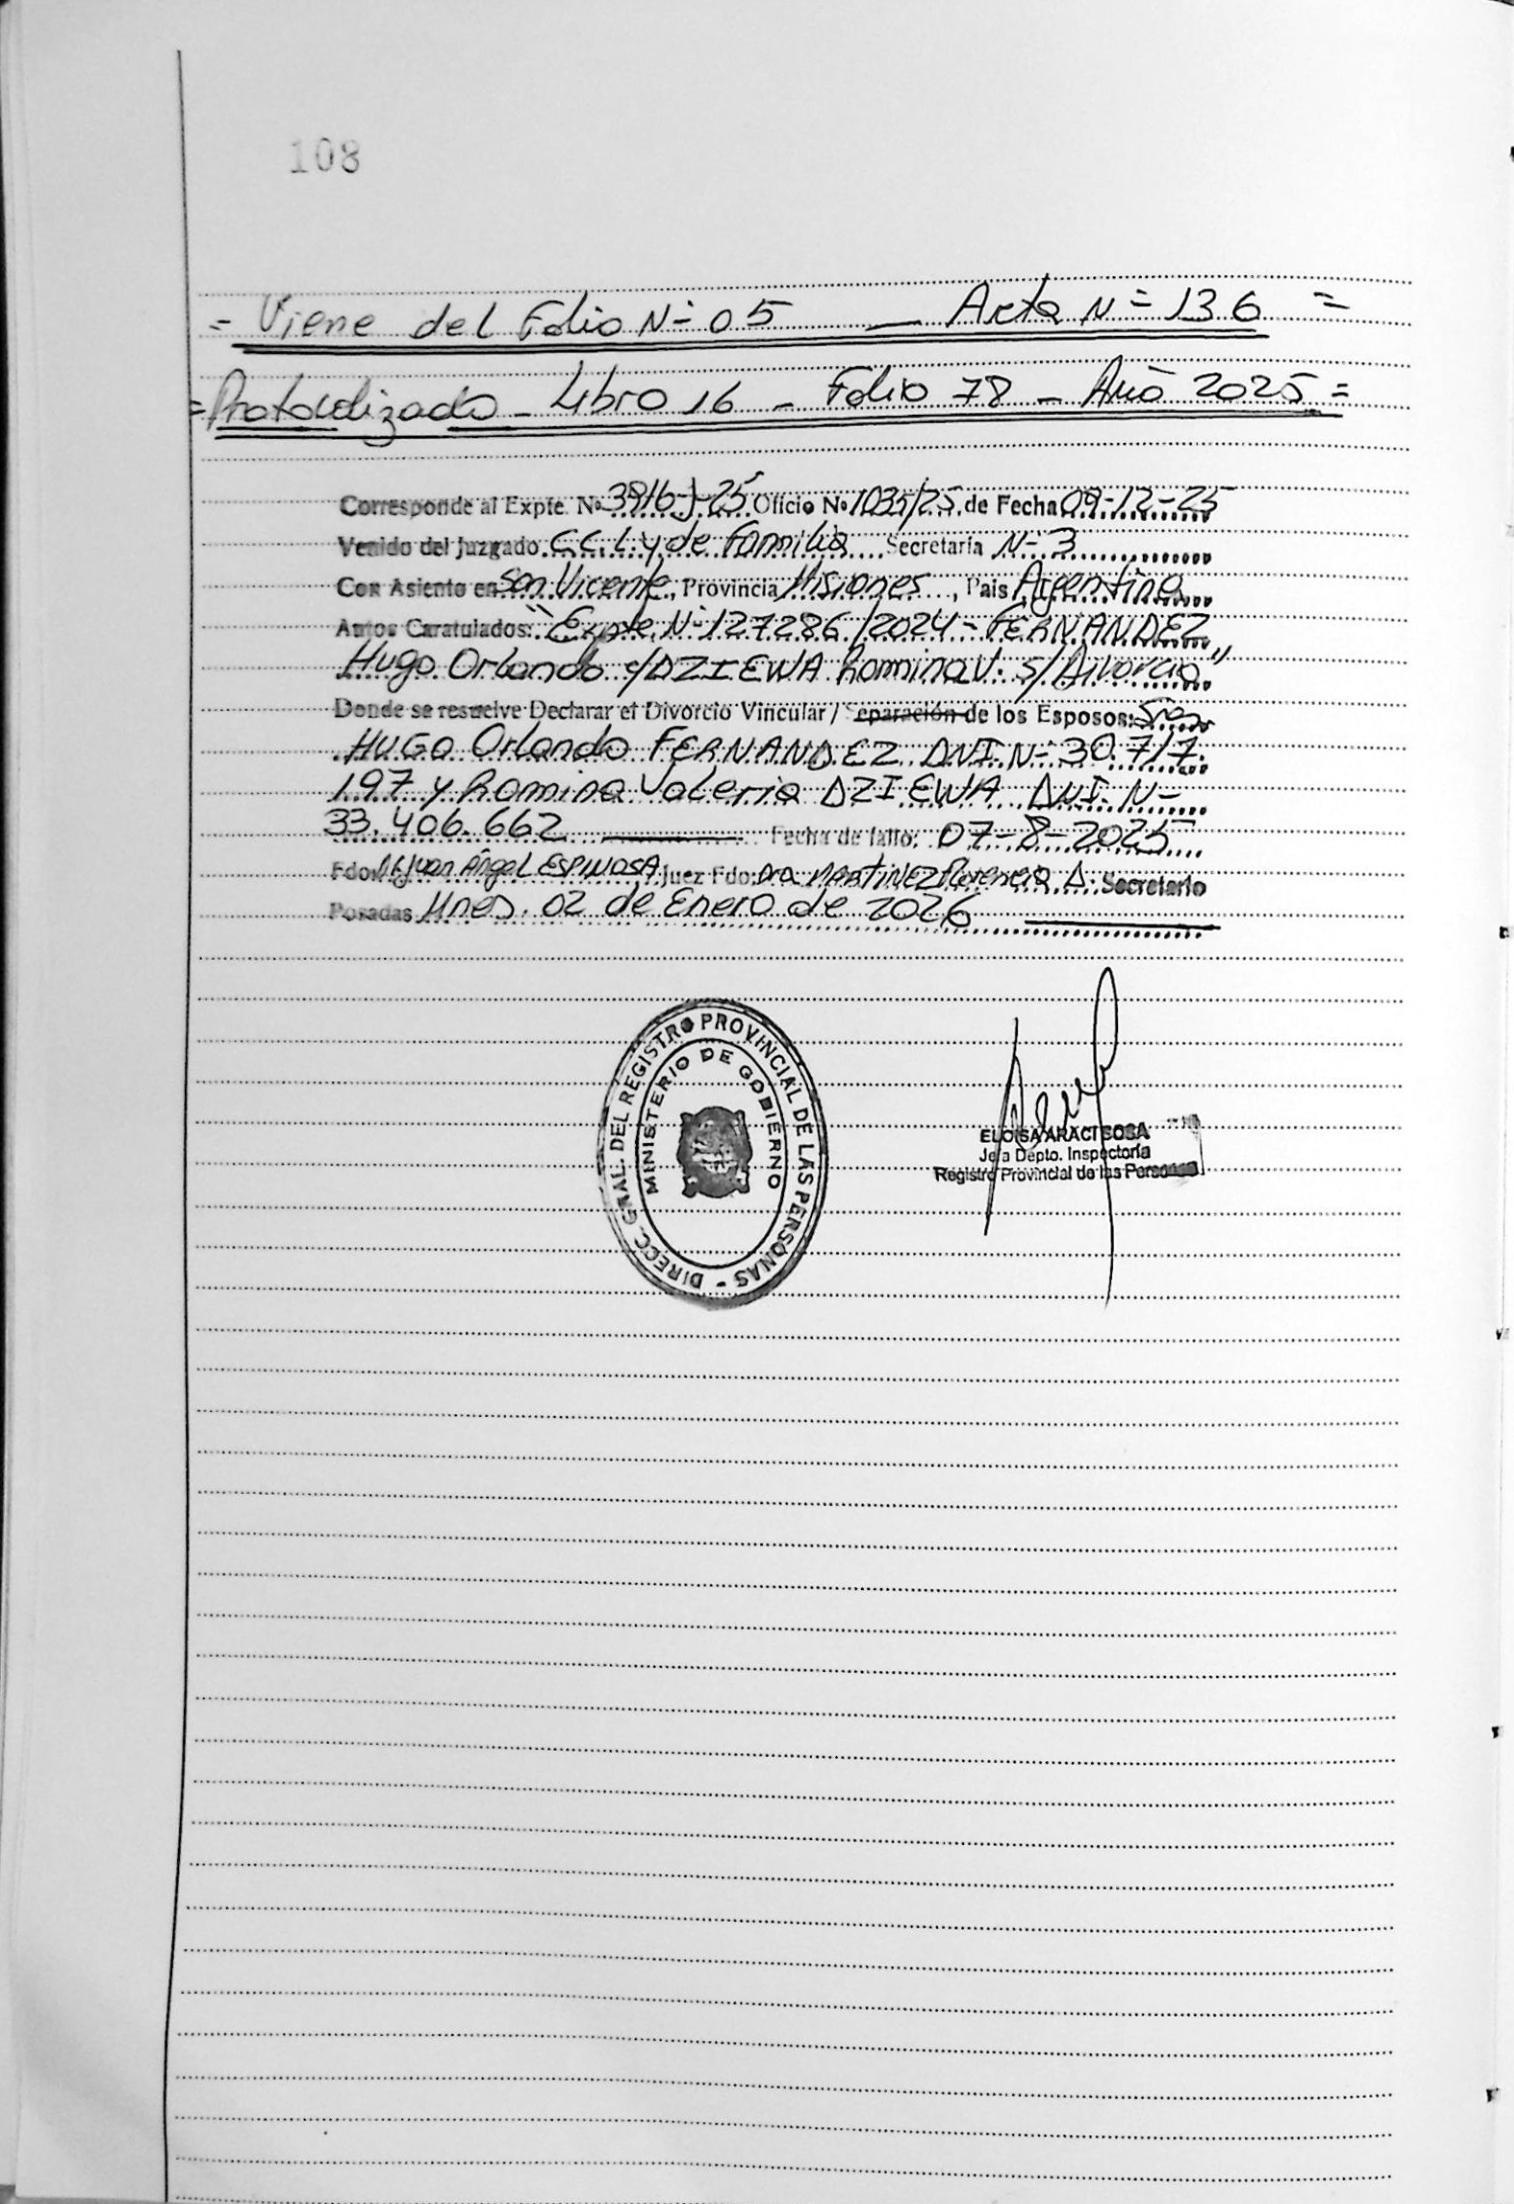 108
= Viene del Folio Nº 05 — Acta Nº 136 =
= Protocolizado - Libro 16 - Folio 78 - Año 2025 =
Corresponde al Expte. Nº 3916-J-25 Oficio Nº 1035/25 de Fecha 09-12-25
Venido del Juzgado C.C.L. y de Familia Secretaría Nº 3
Con Asiento en San Vicente, Provincia Misiones, País Argentina
Autos Caratulados: "Expte. Nº 127286/2024 - FERNANDEZ
Hugo Orlando c/DZIEWA Romina V. s/Divorcio"
Donde se resuelve Declarar el Divorcio Vincular / Separación de los Esposos: Sres.
HUGO Orlando FERNANDEZ DNI. Nº 30.717.
197 y Romina Valeria DZIEWA DNI. Nº
33.406.662 Fecha de fallo: 07-8-2025
Fdo: Dr. Juan Ángel ESPINOSA Juez Fdo: Dra MARTINEZ Florencia D. Secretario
Posadas Mnes. 02 de Enero de 2026
DIRECC. GRAL. DEL REGISTRO PROVINCIAL DE LAS PERSONAS -
MINISTERIO DE GOBIERNO
ELOISA ARACI SOSA
Jefa Depto. Inspectoría
Registro Provincial de las Personas